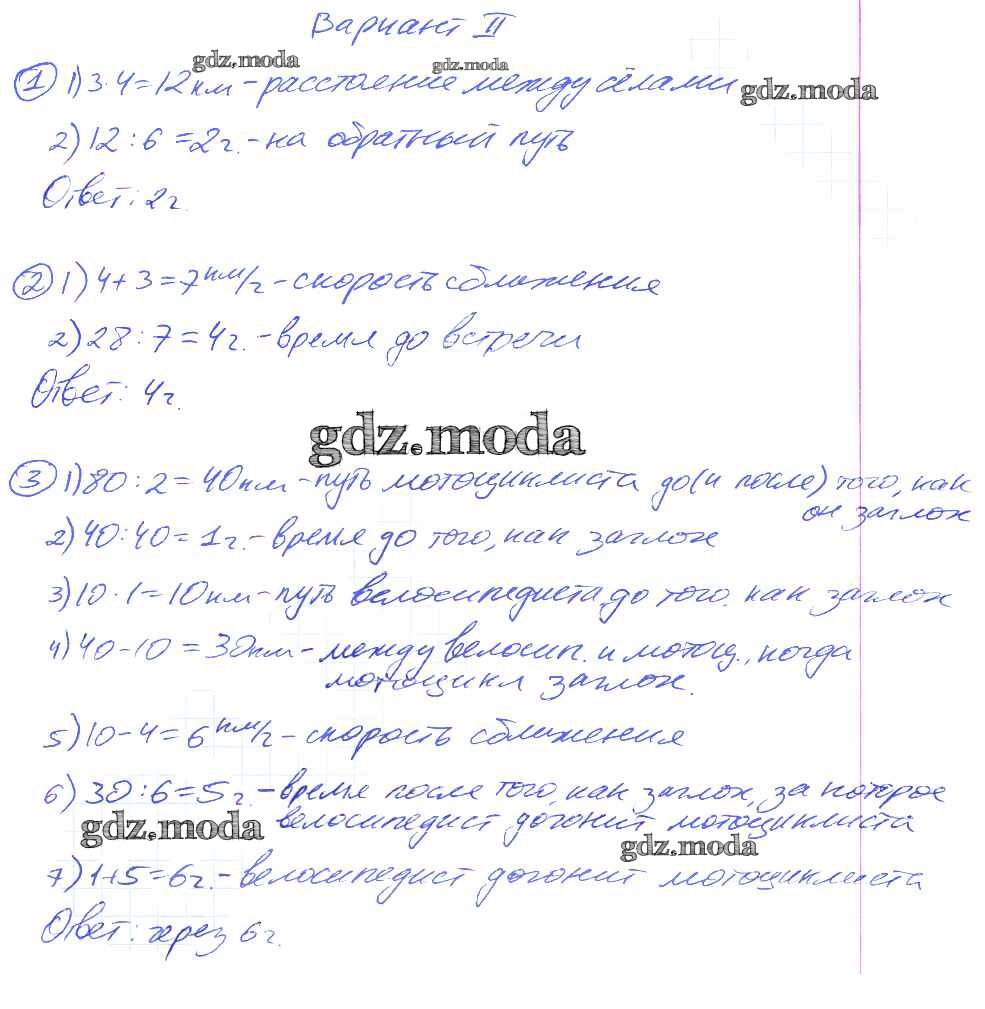 Вариант II
gdz.moda
gdz.moda
① 1) 3·4=12км-расстоение между сёлами
gdz.moda
2) 12:6=2ч.-на обратный путь
Ответ: 2ч.
② 1) 4+3=7км/ч-скорость сближения
2) 28:7=4ч.-время до встречи
Ответ: 4ч.
gdz.moda
③ 1) 80:2=40км-путь мотоциклиста до(и после) того, как
он заглох
2) 40:40=1ч.-время до того, как заглох
3) 10·1=10км-путь велосипедиста до того, как заглох
4) 40-10=30км-между велосип. и мотоц., когда
мотоцикл заглох.
5) 10-4=6км/ч-скорость сближения
6) 30:6=5ч.-время после того, как заглох, за которое
велосипедист догонит мотоциклиста
gdz.moda
gdz.moda
7) 1+5=6ч.-велосипедист догонит мотоциклиста
Ответ: через 6ч.